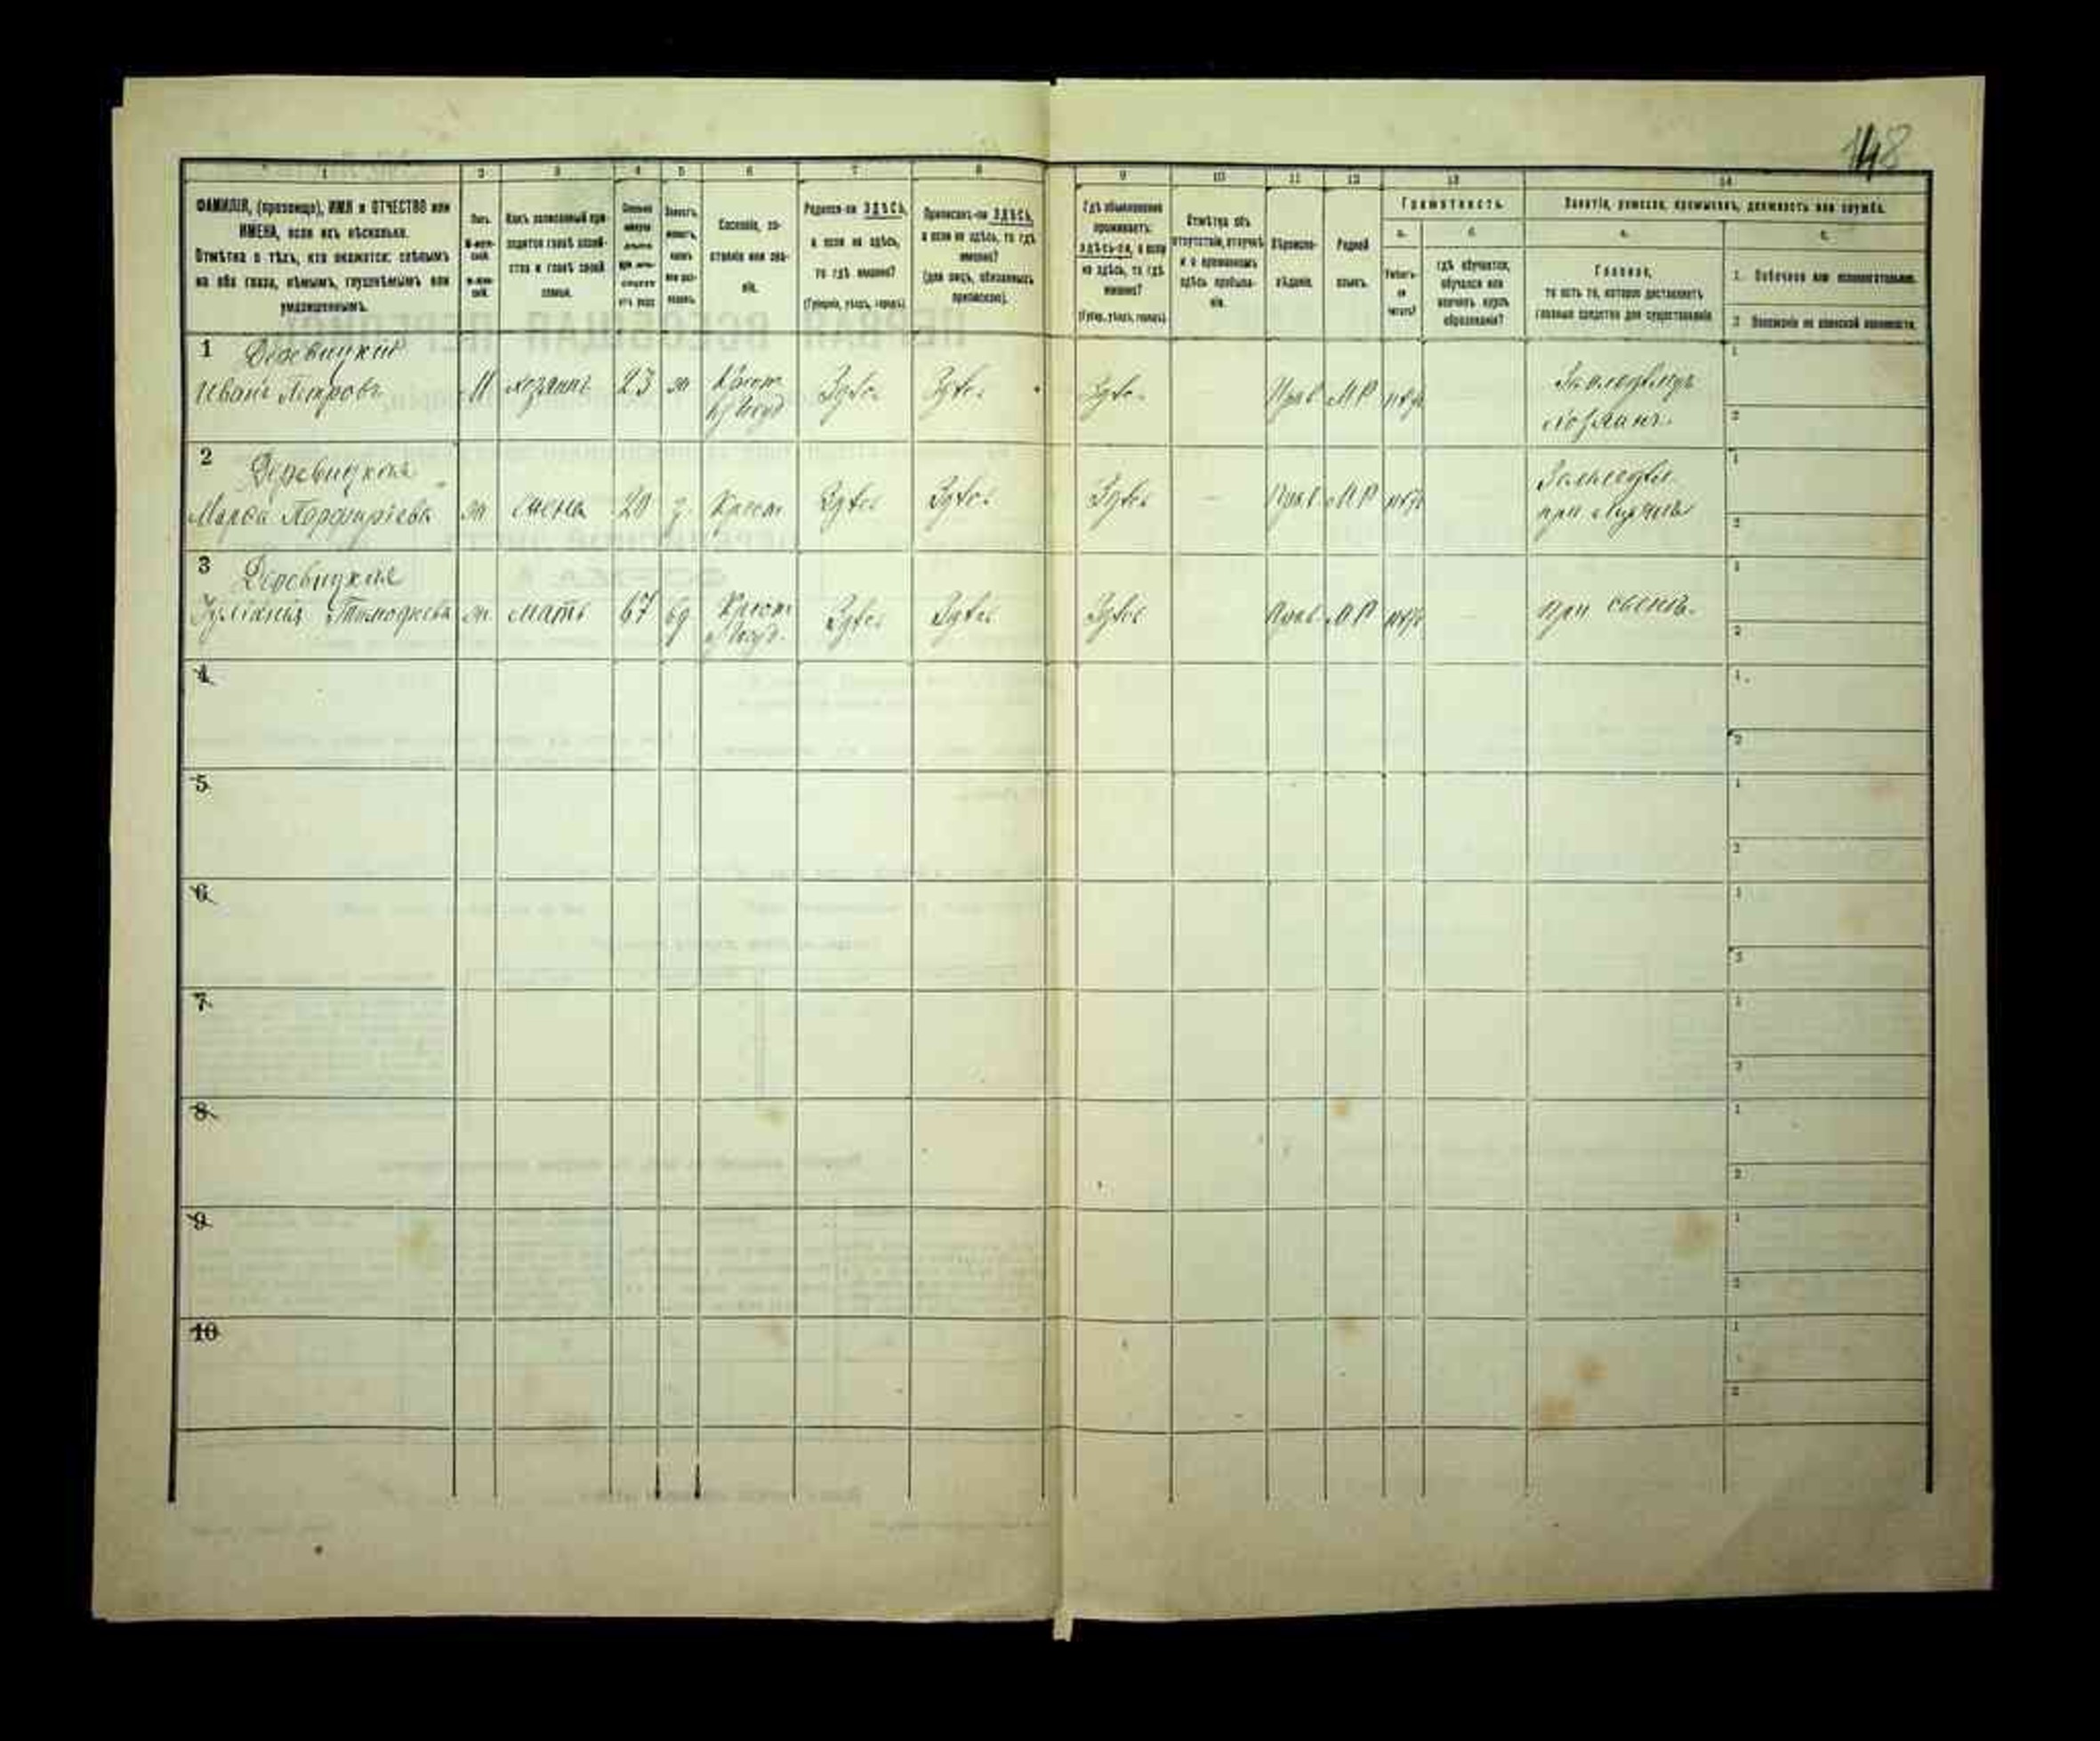 148
1 2 3 4 5 6 7 8 9 10 11 12 13 14
ФАМИЛІЯ, (прозвище), ИМЯ и ОТЧЕСТВО или
ИМЕНА, если ихъ нѣсколько.
Отмѣтка о тѣхъ, кто окажется: слѣпымъ
на оба глаза, нѣмымъ, глухонѣмымъ или
умалишеннымъ.
Полъ.
Какъ записанный при-
ходится главѣ хозяй-
ства и главѣ своей
семьи.
Сословіе, со-
стояніе или зва-
ніе.
Родился-ли ЗДѢСЬ,
а если не здѣсь,
то гдѣ именно?
(Губернія, уѣздъ, городъ)
Приписанъ-ли ЗДѢСЬ,
а если не здѣсь, то гдѣ
именно?
(для лицъ, обязанныхъ
припискою).
Гдѣ обыкновенно
проживаетъ:
здѣсь-ли, а если
не здѣсь, то гдѣ
именно?
(Губер., уѣздъ, городъ).
Отмѣтка объ
отсутствіи, отлучкѣ
и о временномъ
здѣсь пребыва-
ніи.
Вѣроиспо-
вѣданіе.
Родной
языкъ.
Грамотность.
а. б.
Умѣетъ-
ли
читать?
гдѣ обучается,
обучался или
кончилъ курсъ
образованія?
Занятіе, ремесло, промыселъ, должность или служба.
Главное,
то есть то, которое доставляетъ
главныя средства для существованія
1. Побочное или вспомогательное.
2 Положеніе по воинской повинности.
1 Деревицкій
Иванъ Петровъ М хозяинъ 23 ж Крест Здѣсь Здѣсь Здѣсь Прав МР нѣтъ Земледѣлецъ
хозяинъ
2 Деревицкая
Марѳа Порфиріева ж жена 20 з Крест Здѣсь Здѣсь Здѣсь - Прав МР нѣтъ
при мужѣ
3 Деревицкая
Тимофѣева ж мать 67 Крест Здѣсь Здѣсь Здѣсь Прав МР нѣтъ при сынѣ
4
5
6
7
8
9
10